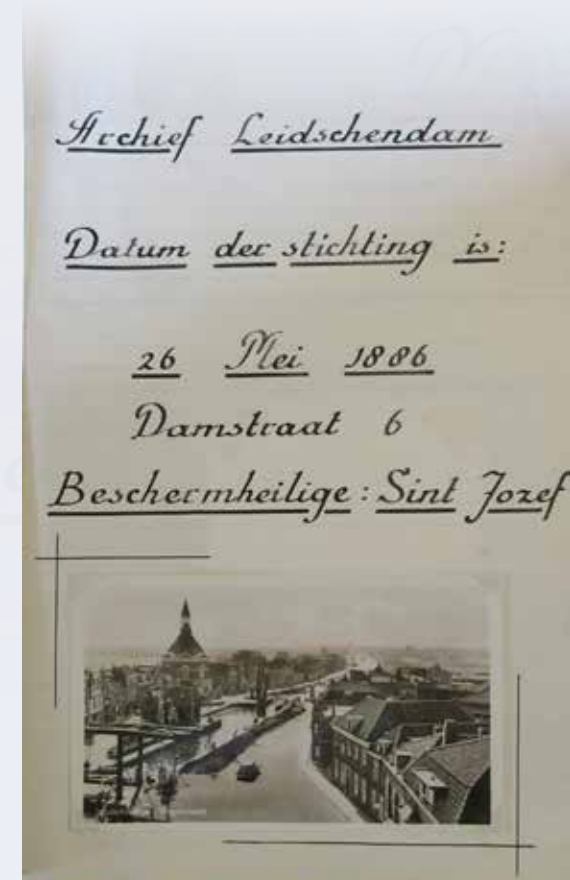 Archief Leidschendam
Datum der stichting is:
26 Mei 1886
Damstraat 6
Beschermheilige: Sint Jozef